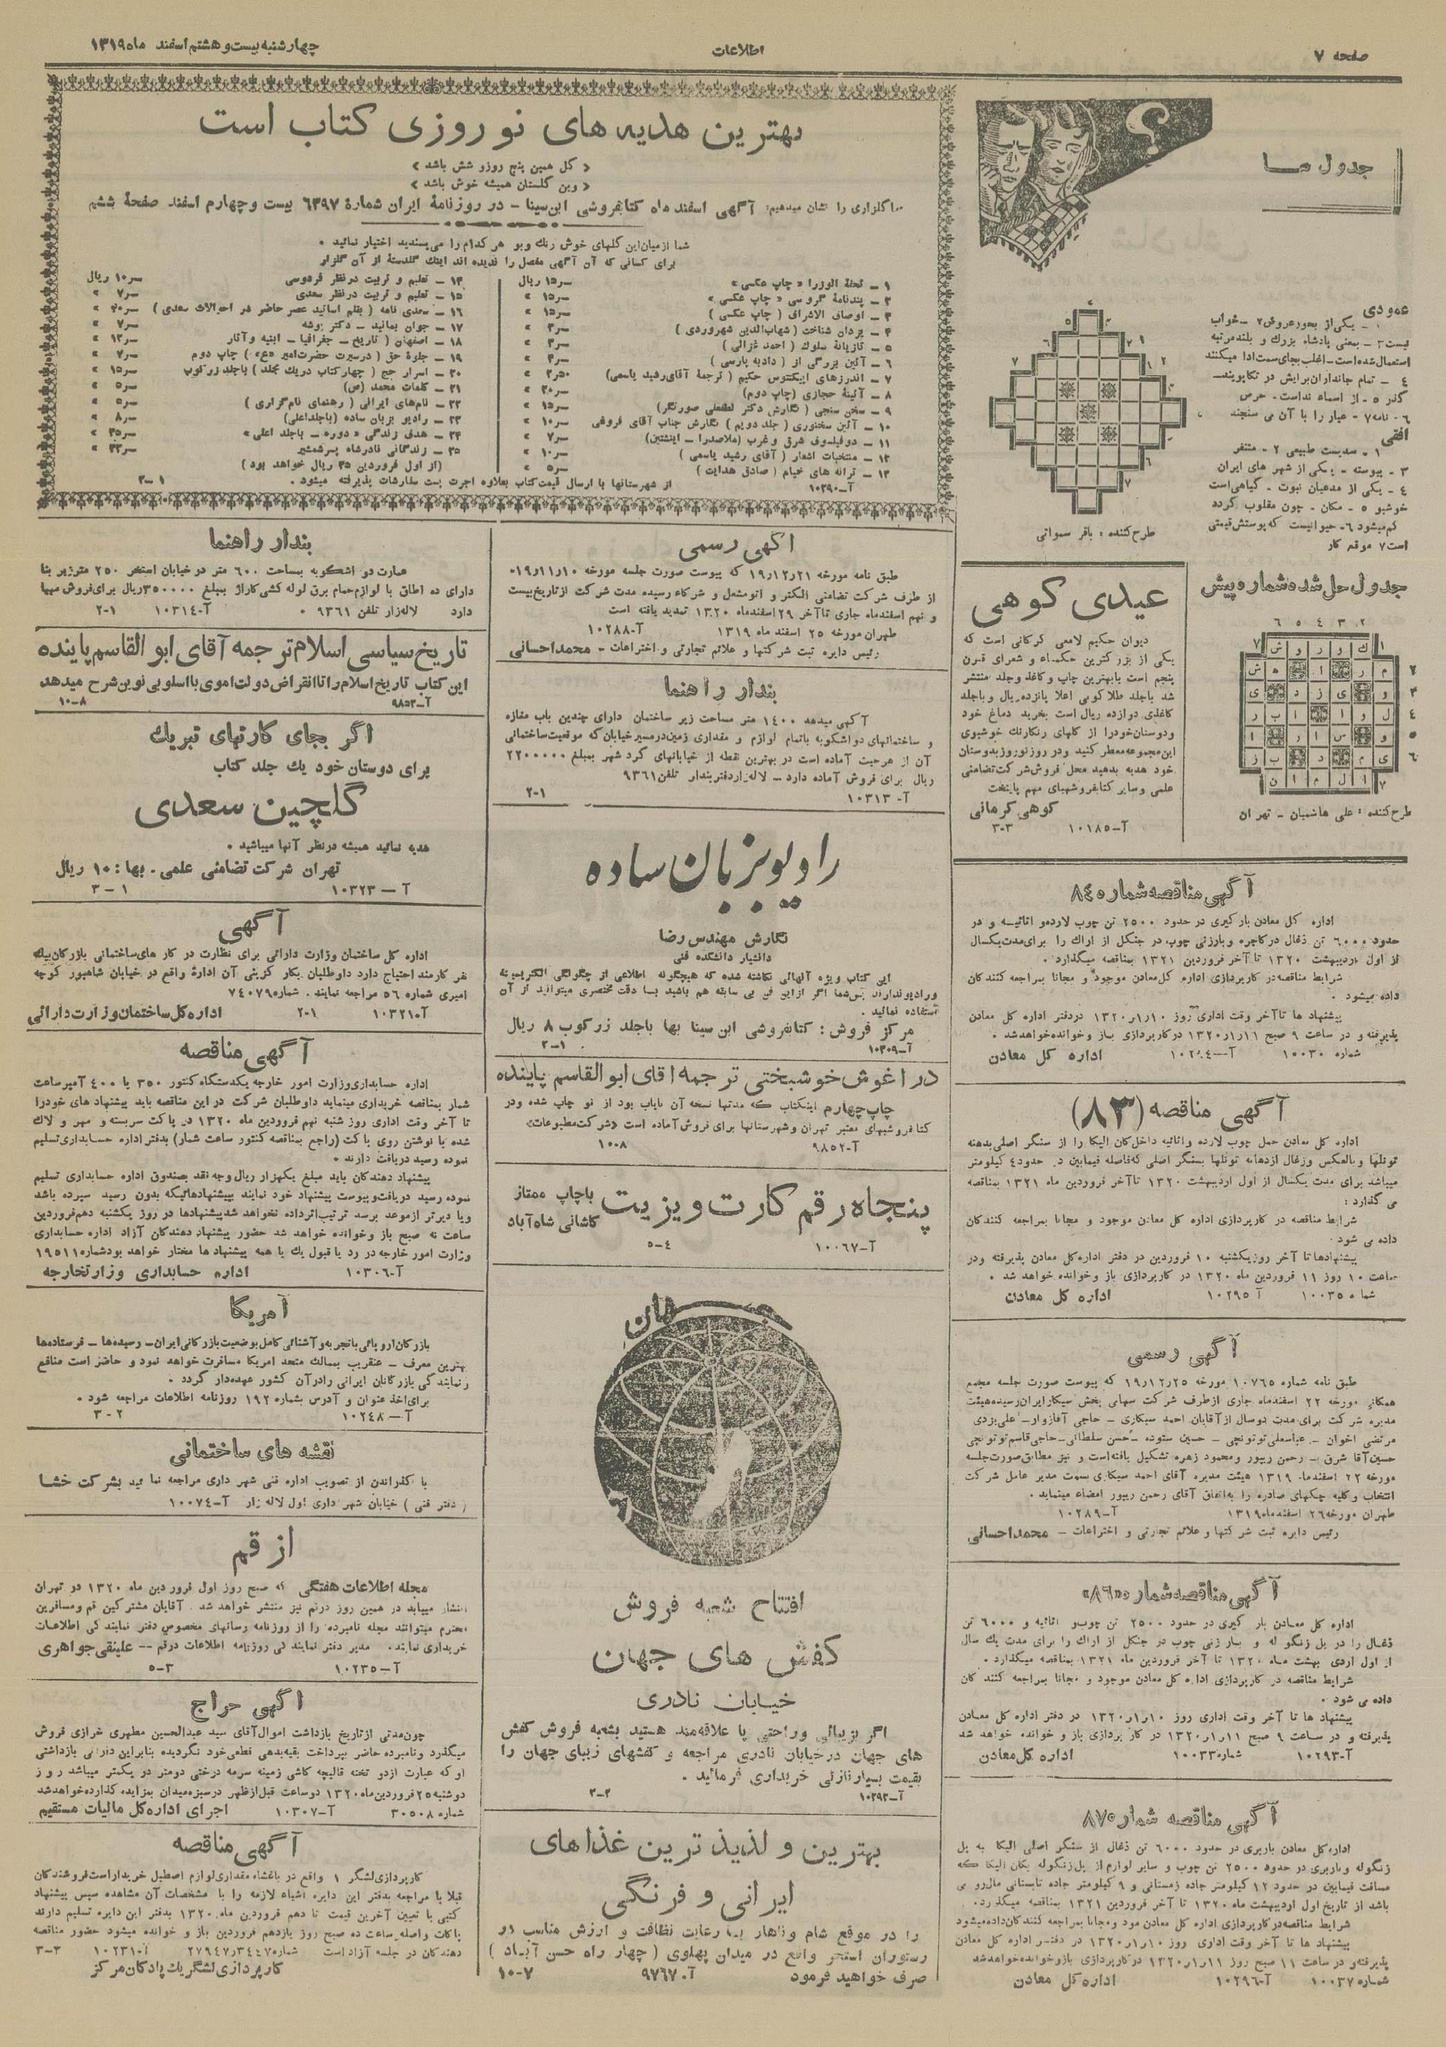 صفحه ۷
اطلاعات
چهارشنبه بیست و هشتم اسفند ماه ۱۳۱۹
جدول ها
عمودی
استعمال شده است - اغلب بجای سمت ادا میکنند
۴ - تمام جانداران برایش در تکاپویند -
گذر ۵ - از اسماء نداست. حرص
۶ - نامه ۷ - عیار را با آن می سنجند
افقی
۱ - سدیست طبیعی ۲ - متنفر
۳ - پیوسته - یکی از شهر های ایران
۴ - یکی از مدعیان نبوت - گیاهی است
خوشبو ۵ - مکان - چون مقلوب گردد
کم میشود ۶ - حیوانیست که پوستش قیمتی
است ۷ موقع کار
طرح کننده : باقر سمواتی
جدول حل شده شماره پیش
طرح کننده : علی هاشمیان - تهران
عیدی کوهی
دیوان حکیم لامعی گرگانی است که
یکی از بزرگترین حکماء و شعرای قرن
پنجم است با بهترین چاپ و کاغذ و جلد منتشر
شد با جلد طلاکوبی اعلا پانزده ریال و با جلد
کاغذی دوازده ریال است بخرید دماغ خود
و دوستان خود را از گلهای رنگارنگ خوشبوی
این مجموعه معطر کنید و در روز نوروز بدوستان
خود هدیه بدهید محل فروش شرکت تضامنی
علمی و سایر کتابفروشیهای مهم پایتخت
کوهی کرمانی
آ-۱۰۱۸۵ ۳-۳
بهترین هدیه های نوروزی کتاب است
« گل همین پنج روز و شش باشد »
« وین گلستان همیشه خوش باشد »
ما گلزاری را نشان میدهیم: آگهی اسفند ماه کتابفروشی ابن سینا - در روزنامهٔ ایران شمارهٔ ۶۳۹۷ بیست و چهارم اسفند صفحهٔ ششم
شما از میان این گلهای خوش رنگ و بو هر کدام را می پسندید اختیار نمائید .
برای کسانی که آن آگهی مفصل را ندیده اند اینک گلدستهٔ از آن گلزار
۱ - تحفة الوزرا « چاپ عکسی » سر۱۵ ریال
۲ - پندنامهٔ گروسی « چاپ عکسی » سر۱۵ »
۳ - اوصاف الاشراف ( چاپ عکسی ) سر۱۵ »
۴ - یزدان شناخت ( شهاب الدین شهروردی ) سر۳ »
۵ - تازیانه سلوک ( احمد غزالی ) سر۳ »
۶ - آئین بزرگی از ( دادبه پارسی ) سر۴ »
۷ - اندرزهای اپیکتتوس حکیم ( ترجمهٔ آقای رشید یاسمی ) ۲ر۵۰ »
۸ - آئینهٔ حجازی (چاپ دوم) سر۲۰ »
۹ - سخن سنجی ( نگارش دکتر لطفعلی صورتگر) سر۱۵ »
۱۰ - آئین سخنوری ( جلد دویم ) نگارش جناب آقای فروغی سر۱۰ »
۱۱ - دو فیلسوف شرق و غرب (ملاصدرا - اینشتین) سر۷ »
۱۲ - منتخبات اشعار ( آقای رشید یاسمی ) سر۱۰ »
۱۳ - ترانه های خیام ( صادق هدایت ) سر۵ »
آ-۱۰۲۹۰
۱۴ - تعلیم و تربیت در نظر فردوسی سر۱۰ ریال
۱۵ - تعلیم و تربیت در نظر سعدی سر۷ »
۱۶ - سعدی نامه ( بقلم اساتید عصر حاضر در احوالات سعدی ) سر۲۰ »
۱۷ - جوان بمانید - دکتر بوشه سر۷ »
۱۸ - اصفهان ( تاریخ - جغرافیا - ابنیه و آثار سر۱۲ »
۱۹ - جلوهٔ حق ( در سیرت حضرت امیر «ع» ) چاپ دوم سر۷ »
۲۰ - اسرار حج ( چهار کتاب در یک مجلد ) با جلد زرکوب سر۱۵ »
۲۱ - کلمات محمد (ص) سر۵ »
۲۲ - نامهای ایرانی ( رهنمای نام گزاری ) سر۵ »
۲۳ - رادیو بزبان ساده (با جلد اعلی) سر۸ »
۲۴ - هدف زندگی « دوره - با جلد اعلی » سر۳۵ »
۲۵ - زندگانی نادرشاه پسر شمشیر سر۳۳ »
(از اول فروردین ۳۵ ریال خواهد بود )
از شهرستانها با ارسال قیمت کتاب بعلاوه اجرت پست سفارشات پذیرفته میشود . ۱-۳
آگهی رسمی
طبق نامه مورخه ۱۹ر۱۲ر۲۱ که پیوست صورت جلسه مورخه ۱۹ر۱۱ر۱۰
از طرف شرکت تضامنی الکتر و اتومشعل و شرکاء رسیده مدت شرکت از تاریخ بیست
و نهم اسفند ماه جاری تا آخر ۲۹ اسفند ماه ۱۳۲۰ تمدید یافته است
طهران مورخه ۲۵ اسفند ماه ۱۳۱۹ آ-۱۰۲۸۸
رئیس دایره ثبت شرکتها و علائم تجارتی و اختراعات - محمد احسانی
بندار راهنما
آگهی میدهد ۱۴۰۰ متر مساحت زیر ساختمان دارای چندین باب مغازه
و ساختمانهای دو اشکوبه با تمام لوازم و مقداری زمین در مسیر خیابان که موقعیت ساختمانی
آن از هر حیث آماده است در بهترین نقطه از خیابانهای گرد شهر بمبلغ ۲۲۰۰۰۰۰
ریال برای فروش آماده دارد - لاله زار دفتر بندار تلفن ۹۳۶۱
آ-۱۰۳۱۳ ۲-۱
رادیو بزبان ساده
نگارش مهندس رضا
دانشیار دانشکده فنی
این کتاب ویژه آنهائی نگاشته شده که هیچگونه اطلاعی از چگونگی الکتریسیته
و رادیو ندارند پس شما اگر از این فن بی سابقه هم باشید با دقت مختصری میتوانید از آن
استفاده نمائید .
مرکز فروش : کتابفروشی ابن سینا بها با جلد زرکوب ۸ ریال
آ-۱۰۳۰۹ ۱-۲
در آغوش خوشبختی ترجمه آقای ابوالقاسم پاینده
چاپ چهارم اینکتاب که مدتها نسخه آن نایاب بود از نو چاپ شده و در
کتابفروشیهای معتبر تهران و شهرستانها برای فروش آماده است «شرکت مطبوعات»
آ-۹۸۵۲ ۸-۱۰
پنجاه رقم کارت ویزیت با چاپ ممتاز
کاشانی شاه آباد
آ-۱۰۰۶۷ ۴-۵
جهان
افتتاح شعبه فروش
کفش های جهان
خیابان نادری
اگر بزیبائی و راحتی پا علاقه مند هستید بشعبه فروش کفش
های جهان در خیابان نادری مراجعه و کفشهای زیبای جهان را
بقیمت بسیار نازلی خریداری فرمائید .
آ-۱۰۲۹۲
بهترین و لذیذ ترین غذاهای
ایرانی و فرنگی
را در موقع شام و ناهار با رعایت نظافت و ارزش مناسب در
رستوران استخر واقع در میدان پهلوی ( چهار راه حسن آباد )
صرف خواهید فرمود آ-۹۷۶۷ ۷-۱۰
بندار راهنما
عمارت دو اشکوبه بمساحت ۶۰۰ متر در خیابان استخر ۲۵۰ متر زیر بنا
دارای ده اطاق با لوازم حمام برق لوله کشی گاراژ بمبلغ ۳۵۰۰۰۰ ریال برای فروش مهیا
دارد لاله زار تلفن ۹۳۶۱ . آ-۱۰۳۱۴ ۲-۱
تاریخ سیاسی اسلام ترجمه آقای ابوالقاسم پاینده
این کتاب تاریخ اسلام را تا انقراض دولت اموی با اسلوبی نوین شرح میدهد.
آ-۹۸۵۳ ۸-۱۰
اگر بجای کارتهای تبریک
برای دوستان خود یک جلد کتاب
گلچین سعدی
هدیه نمائید همیشه در نظر آنها میباشید .
تهران شرکت تضامنی علمی . بها : ۱۰ ریال
آ-۱۰۳۲۳ ۱-۳
آگهی
اداره کل ساختمان وزارت دارائی برای نظارت در کار های ساختمانی بازرگان بیک
نفر کارمند احتیاج دارد داوطلبان بکار گزینی آن ادارهٔ واقع در خیابان شاهپور کوچه
امیری شماره ۵۶ مراجعه نمایند . شماره ۷۴۰۷۹
آ-۱۰۳۲۱ ۲-۱ اداره کل ساختمان وزارت دارائی
آگهی مناقصه
اداره حسابداری وزارت امور خارجه یکدستگاه کنتور ۳۵۰ یا ۴۰۰ آمپر ساعت
شمار بمناقصه خریداری مینماید داوطلبان شرکت در این مناقصه باید پیشنهاد های خود را
تا آخر وقت اداری روز شنبه نهم فروردین ماه ۱۳۲۰ در پاکت سربسته و مهر و لاک
شده با نوشتن روی پاکت (راجع بمناقصه کنتور ساعت شمار) بدفتر اداره حسابداری تسلیم
نموده رسید دریافت دارند .
پیشنهاد دهندگان باید مبلغ یکهزار ریال وجه نقد بصندوق اداره حسابداری تسلیم
نموده رسید دریافت و پیوست پیشنهاد خود نمایند بپیشنهادهائیکه بدون رسید سپرده باشد
و یا دیرتر از موعد برسد ترتیب اثر داده نخواهد شد پیشنهادها در روز یکشنبه دهم فروردین
ساعت نه صبح باز و خوانده خواهد شد حضور پیشنهاد دهندگان آزاد اداره حسابداری
وزارت امور خارجه در رد یا قبول یک یا همه پیشنهاد ها مختار خواهد بود شماره ۱۹۵۱۱
آ-۱۰۳۰۶ اداره حسابداری وزارتخارجه
آمریکا
بازرگان اروپائی با تجربه و آشنائی کامل بوضعیت بازرگانی ایران - رسیده ها - فرستاده ها
بهترین معرف - عنقریب بممالک متحد امریکا مسافرت خواهد نمود و حاضر است منافع
و نمایندگی بازرگانان ایرانی را در آن کشور عهده دار گردد .
برای اخذ عنوان و آدرس بشماره ۱۹۲ روزنامه اطلاعات مراجعه شود .
آ-۱۰۲۴۸ ۲-۳
نقشه های ساختمانی
با گذراندن از تصویب اداره فنی شهر داری مراجعه نمائید بشرکت خشا
( دفتر فنی ) خیابان شهرداری اول لاله زار آ-۱۰۰۷۴
از قم
مجله اطلاعات هفتگی که صبح روز اول فروردین ماه ۱۳۲۰ در تهران
انتشار مییابد در همین روز در قم نیز منتشر خواهد شد . آقایان مشترکین قم و مسافرین
محترم میتوانند مجله نامبرده را از روزنامه رسانهای مخصوص دفتر نمایندگی اطلاعات
خریداری نمایند. مدیر دفتر نمایندگی روزنامه اطلاعات در قم - علینقی جواهری
آ-۱۰۲۳۵ ۳-۵
آگهی حراج
چون مدتی از تاریخ بازداشت اموال آقای سید عبدالحسین مطهری خرازی فروش
میگذرد و نامبرده حاضر بپرداخت بقیه بدهی قطعی خود نگردیده بنابراین دارائی بازداشتی
او که عبارت از دو تخته قالیچه کاشی زمینه سرمه درختی دو متر در یکمتر میباشد روز
دوشنبه ۲۵ فروردین ماه ۱۳۲۰ دو ساعت قبل از ظهر در سبزه میدان بمزایده گذارده خواهد شد
شماره ۳۰۵۰۸ آ-۱۰۳۰۷ اجرای اداره کل مالیات مستقیم
آگهی مناقصه
کارپردازی لشگر ۱ واقع در باغشاه مقداری لوازم اصطبل خریدار است فروشندگان
قبلا با مراجعه بدفتر این دایره اشیاء لازمه را با مشخصات آن مشاهده سپس پیشنهاد
کتبی با تعیین آخرین قیمت تا دهم فروردین ماه ۱۳۲۰ بدفتر این دایره تسلیم دارند
پاکات واصله ساعت ده صبح روز یازدهم فروردین باز و خوانده میشود حضور مناقصه
دهندگان در جلسه آزاد است آ-۱۰۲۳۱ ۳-۳
کارپردازی لشگر یک پادگان مرکز
آگهی مناقصه شماره ۸۴
اداره کل معادن بارگیری در حدود ۲۵۰۰ تن چوب لارده و اثاثیه و در
حدود ۶۰۰۰ تن ذغال در گاجره و بارزنی چوب در جنگل از اراک را برای مدت یکسال
از اول اردیبهشت ۱۳۲۰ تا آخر فروردین ۱۳۲۱ بمناقصه میگذارد .
شرایط مناقصه در کارپردازی اداره کل معادن موجود و مجانا بمراجعه کنندگان
داده میشود .
پیشنهاد ها تا آخر وقت اداری روز ۱۰ر۱ر۱۳۲۰ در دفتر اداره کل معادن
پذیرفته و در ساعت ۹ صبح ۱۱ر۱ر۱۳۲۰ در کارپردازی باز و خوانده خواهد شد .
شماره ۱۰۰۳۰ اداره کل معادن
آگهی مناقصه (۸۳)
اداره کل معادن حمل چوب لارده و اثاثیه داخل کان الیکا را از سنگر اصلی بدهنه
تونلها و بالعکس و زغال از دهانه تونلها بسنگر اصلی که فاصله فیمابین در حدود ۴ کیلومتر
میباشد برای مدت یکسال از اول اردیبهشت ۱۳۲۰ تا آخر فروردین ماه ۱۳۲۱ بمناقصه
می گذارد :
شرایط مناقصه در کارپردازی اداره کل معادن موجود و مجانا بمراجعه کنندگان
داده می شود .
پیشنهادها تا آخر روز یکشنبه ۱۰ فروردین در دفتر اداره کل معادن پذیرفته و در
ساعت ۱۰ روز ۱۱ فروردین ماه ۱۳۲۰ در کارپردازی باز و خوانده خواهد شد .
شماره ۱۰۰۳۵ آ-۱۰۲۹۵ اداره کل معادن
آگهی رسمی
طبق نامه شماره ۱۰۷۶۵ مورخه ۱۹ر۱۲ر۲۵ که پیوست صورت جلسه مجمع
همگانی مورخه ۲۲ اسفند ماه جاری از طرف شرکت سهامی پخش سیگار ایران رسیده هیئت
مدیره شرکت برای مدت دو سال از آقایان احمد سیگاری - حاجی آقا زوار - علی یزدی
مرتضی اخوان - عباسعلی توتونچی - حسین ستوده - حسن سلطانی - حاجی قاسم توتونچی
حسین آقا شرق - رحمن ریپور و محمود زهره تشکیل یافته است و نیز مطابق صورت جلسه
مورخه ۲۲ اسفند ماه ۱۳۱۹ هیئت مدیره آقای احمد سیگاری بسمت مدیر عامل شرکت
انتخاب و کلیه چکهای صادره را باتفاق آقای رحمن ریپور امضاء مینماید .
طهران مورخه ۲۶ اسفند ماه ۱۳۱۹ آ-۱۰۲۸۹
رئیس دایره ثبت شرکتها و علائم تجارتی و اختراعات - محمد احسانی
آگهی مناقصه شماره «۸۶»
اداره کل معادن بار گیری در حدود ۲۵۰۰ تن چوب و اثاثیه و ۶۰۰۰ تن
ذغال را در پل زنگوله و بار زنی چوب در جنگل از اراک را برای مدت یک سال
از اول اردی بهشت ماه ۱۳۲۰ تا آخر فروردین ماه ۱۳۲۱ بمناقصه میگذارد .
شرایط مناقصه در کارپردازی اداره کل معادن موجود و مجانا بمراجعه کنندگان
داده می شود .
پیشنهاد ها تا آخر وقت اداری روز ۱۰ر۱ر۱۳۲۰ در دفتر اداره کل معادن
پذیرفته و در ساعت ۹ صبح ۱۱ر۱ر۱۳۲۰ در کار پردازی باز و خوانده خواهد شد
آ-۱۰۲۹۳ شماره ۱۰۰۳۳ اداره کل معادن
آگهی مناقصه شماره ۸۷
اداره کل معادن باربری در حدود ۶۰۰۰ تن ذغال از سنگر اصلی الیکا به پل
زنگوله و باربری در حدود ۲۵۰۰ تن چوب و سایر لوازم از پل زنگوله بکان الیکا که
مسافت فیمابین در حدود ۱۲ کیلومتر جاده زمستانی و ۹ کیلومتر جاده تابستانی مالرو می
باشد از تاریخ اول اردیبهشت ماه ۱۳۲۰ تا آخر فروردین ۱۳۲۱ بمناقصه میگذارد .
شرایط مناقصه در کارپردازی اداره کل معادن موجود و مجانا بمراجعه کنندگان داده میشود
پیشنهاد ها تا آخر وقت اداری روز ۱۰ر۱ر۱۳۲۰ در دفتر اداره کل معادن
پذیرفته و در ساعت ۱۱ صبح روز ۱۱ر۱ر۱۳۲۰ در کارپردازی باز و خوانده خواهد شد
شماره ۱۰۰۳۷ آ-۱۰۲۹۶ اداره کل معادن